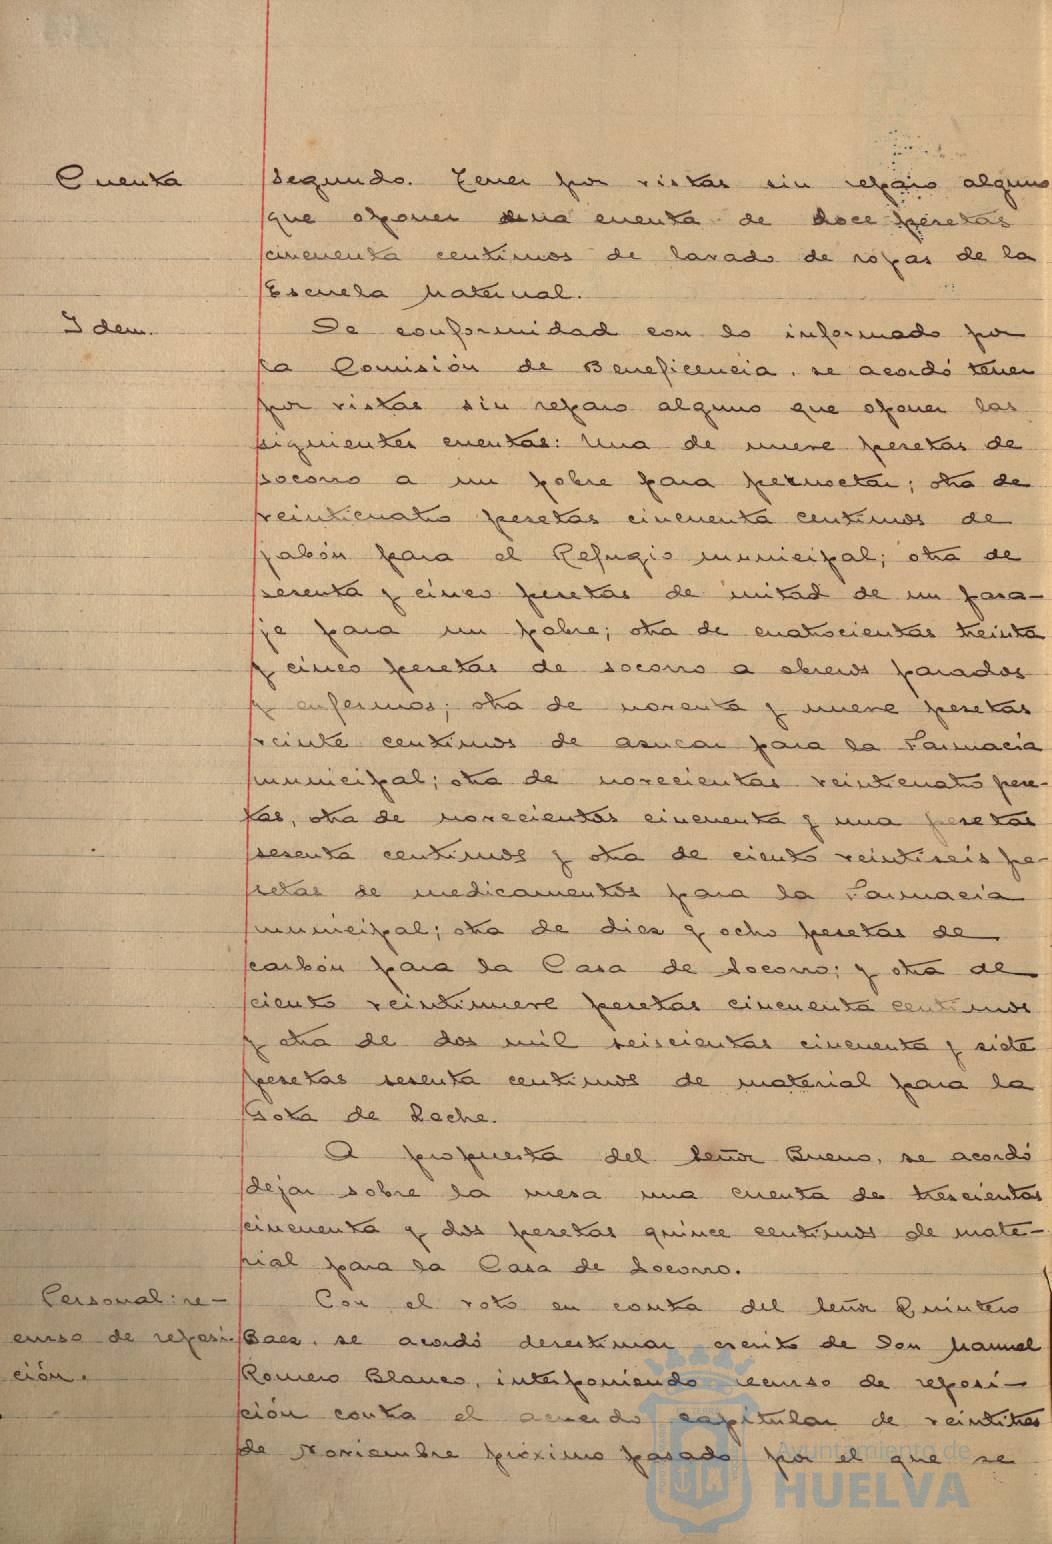 Cuenta
segundo. Tener por vistas sin reparo alguno
que oponer una cuenta de doce pesetas
cincuenta centimos de lavado de ropas de la
Escuela Maternal.
Idem.
De conformidad con lo informado por
la Comisión de Beneficencia, se acordó tener
por vistas sin reparo alguno que oponer las
siguientes cuentas: Una de nueve pesetas de
socorro a un pobre para pernoctar; otra de
veinticuatro pesetas cincuenta centimos de
jabón para el Refugio municipal; otra de
sesenta y cinco pesetas de mitad de un pasa-
je para un pobre; otra de cuatrocientas treinta
y cinco pesetas de socorro a obreros parados
y enfermos; otra de noventa y nueve pesetas
veinte centimos de asucar para la Farmacia
municipal; otra de novecientas veinticuatro pese-
tas, otra de novecientas cincuenta y una pesetas
sesenta centimos y otra de ciento veintiseis pe-
setas de medicamentos para la Farmacia
municipal; otra de diez y ocho pesetas de
carbón para la Casa de Socorro; y otra de
ciento veintinueve pesetas cincuenta centimos
y otra de dos mil seiscientas cincuenta y siete
pesetas sesenta centimos de material para la
Gota de Leche.
A propuesta del Señor Bueno, se acordó
dejar sobre la mesa una cuenta de trescientas
cincuenta y dos pesetas quince centimos de mate-
rial para la Casa de Socorro.
Personal: re-
curso de reposi-
ción.
Con el voto en contra del Señor Quintero
Baez, se acordó desestimar escrito de Don Manuel
Romero Blanco, interponiendo recurso de reposi-
ción contra el acuerdo capitular de veintitres
de Noviembre próximo pasado por el que se
Ayuntamiento de
HUELVA